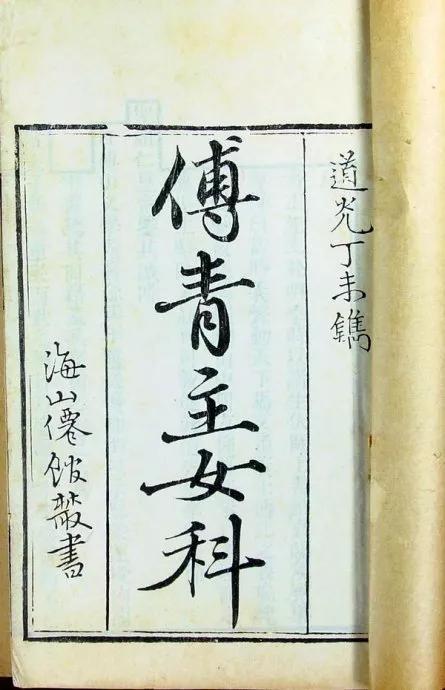 道光丁未鐫
傅青主女科
海山僊館叢書